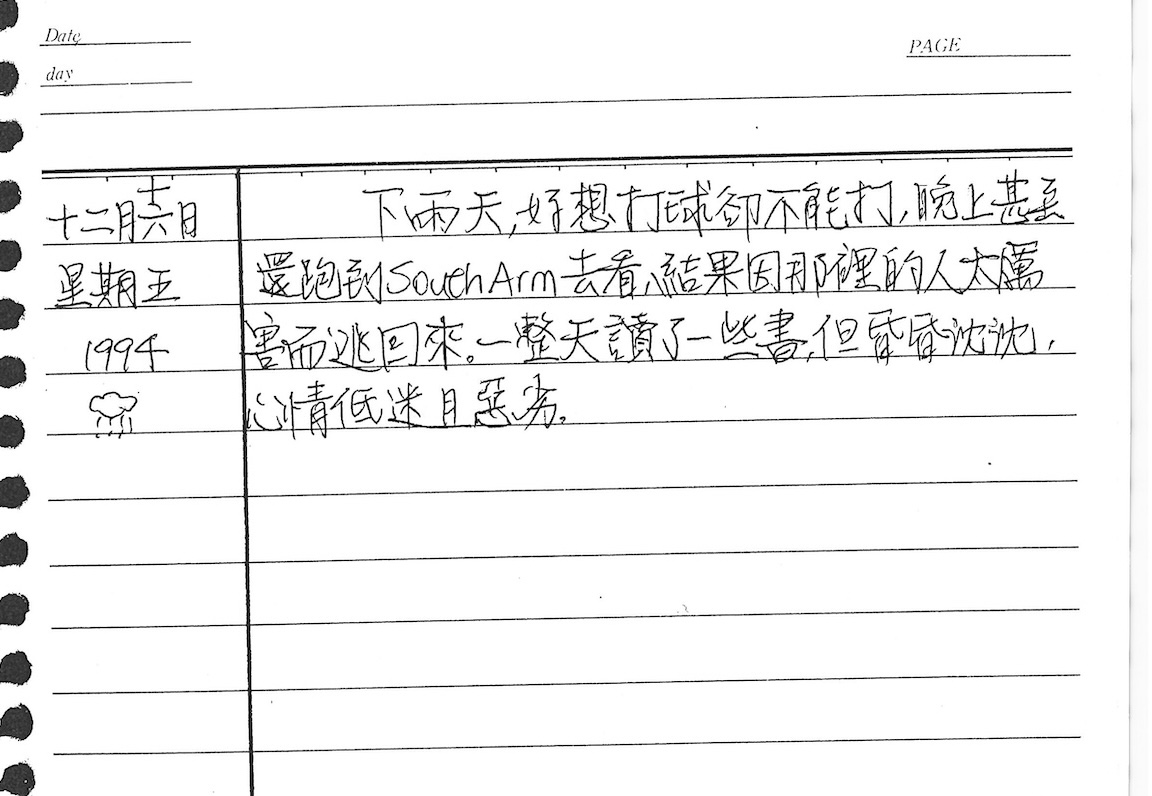 Date
day
PAGE
十二月十六日
星期五
1994
下雨天,好想打球卻不能打,晚上甚至
還跑到South Arm去看,結果因那裡的人太厲
害而逃回來。一整天讀了一些書,但昏昏沈沈,
心情低迷且惡劣。